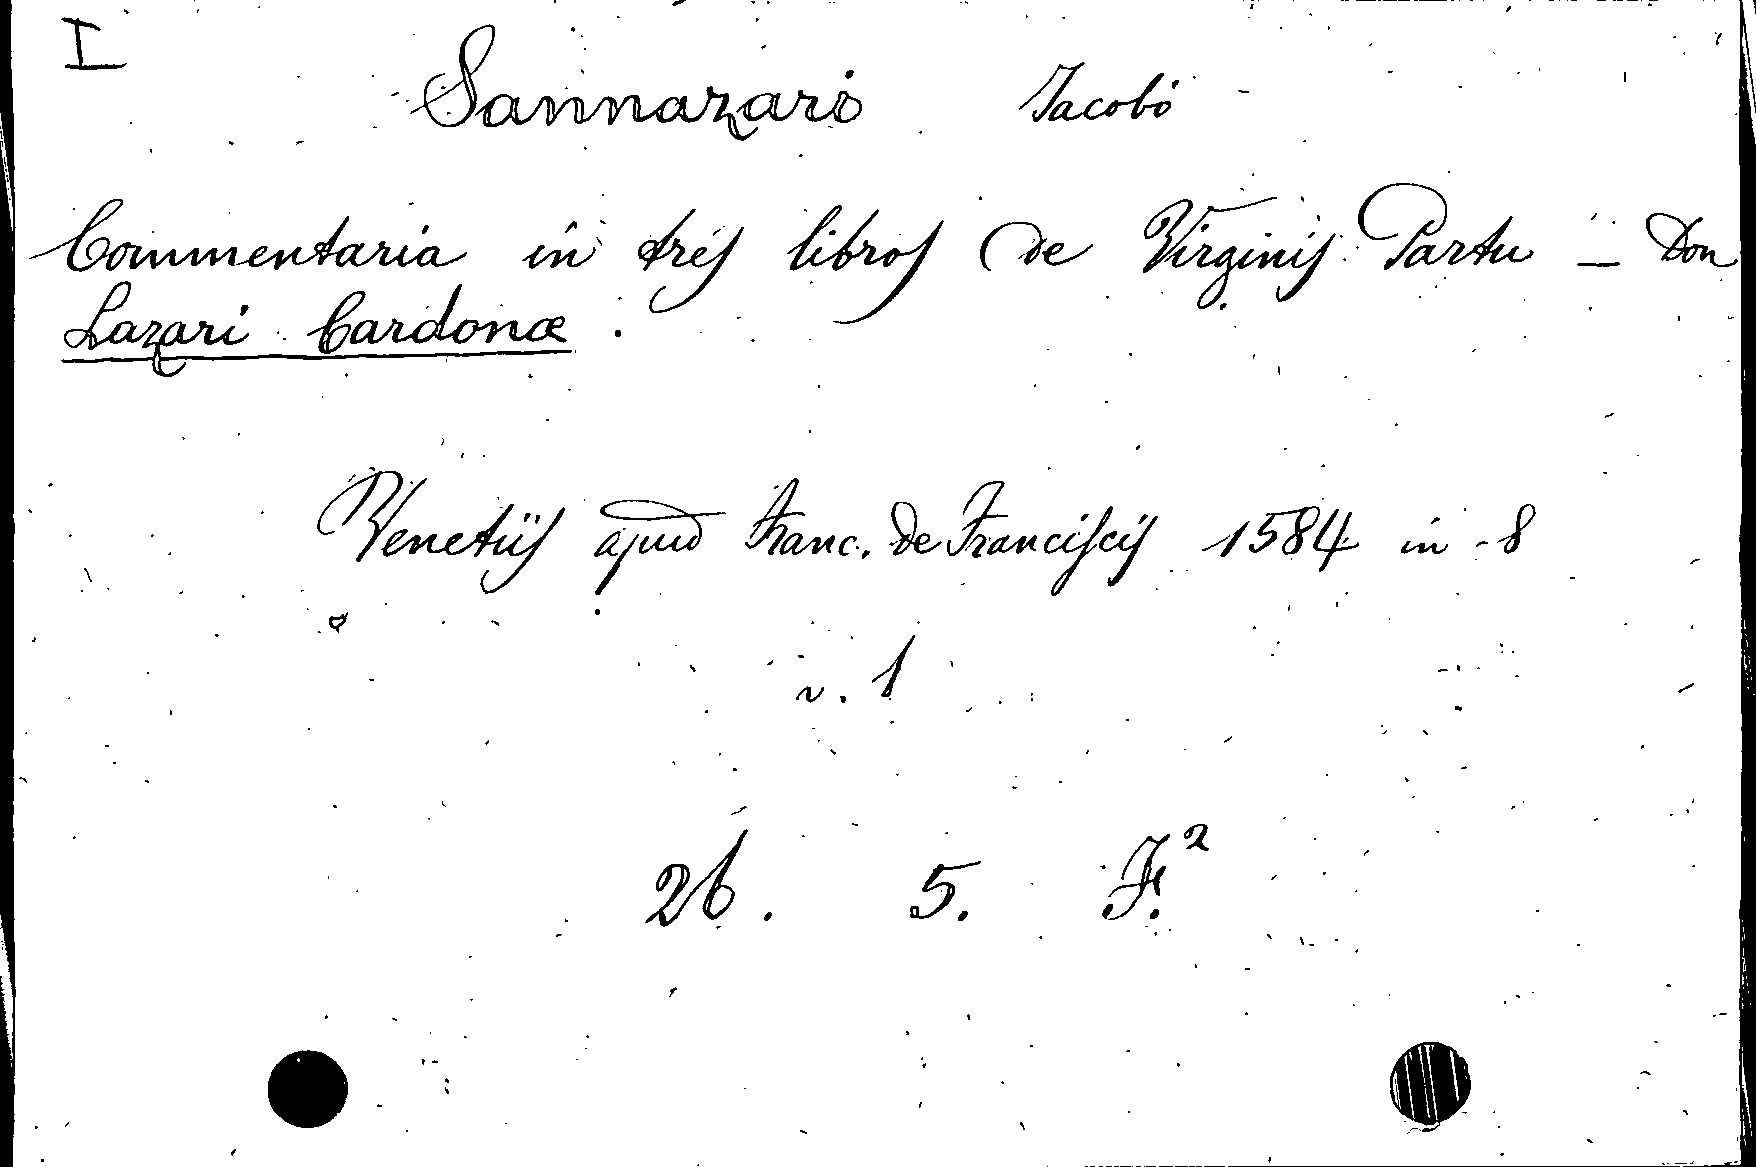 I
Sannazaro Jacobo
Commentaria in tres libros de Virginis Partu – Don
Lazari Cardonæ.
Venetiis apud Franc. de Franciscis 1584 in-8
v. 1
26. 5. F.²